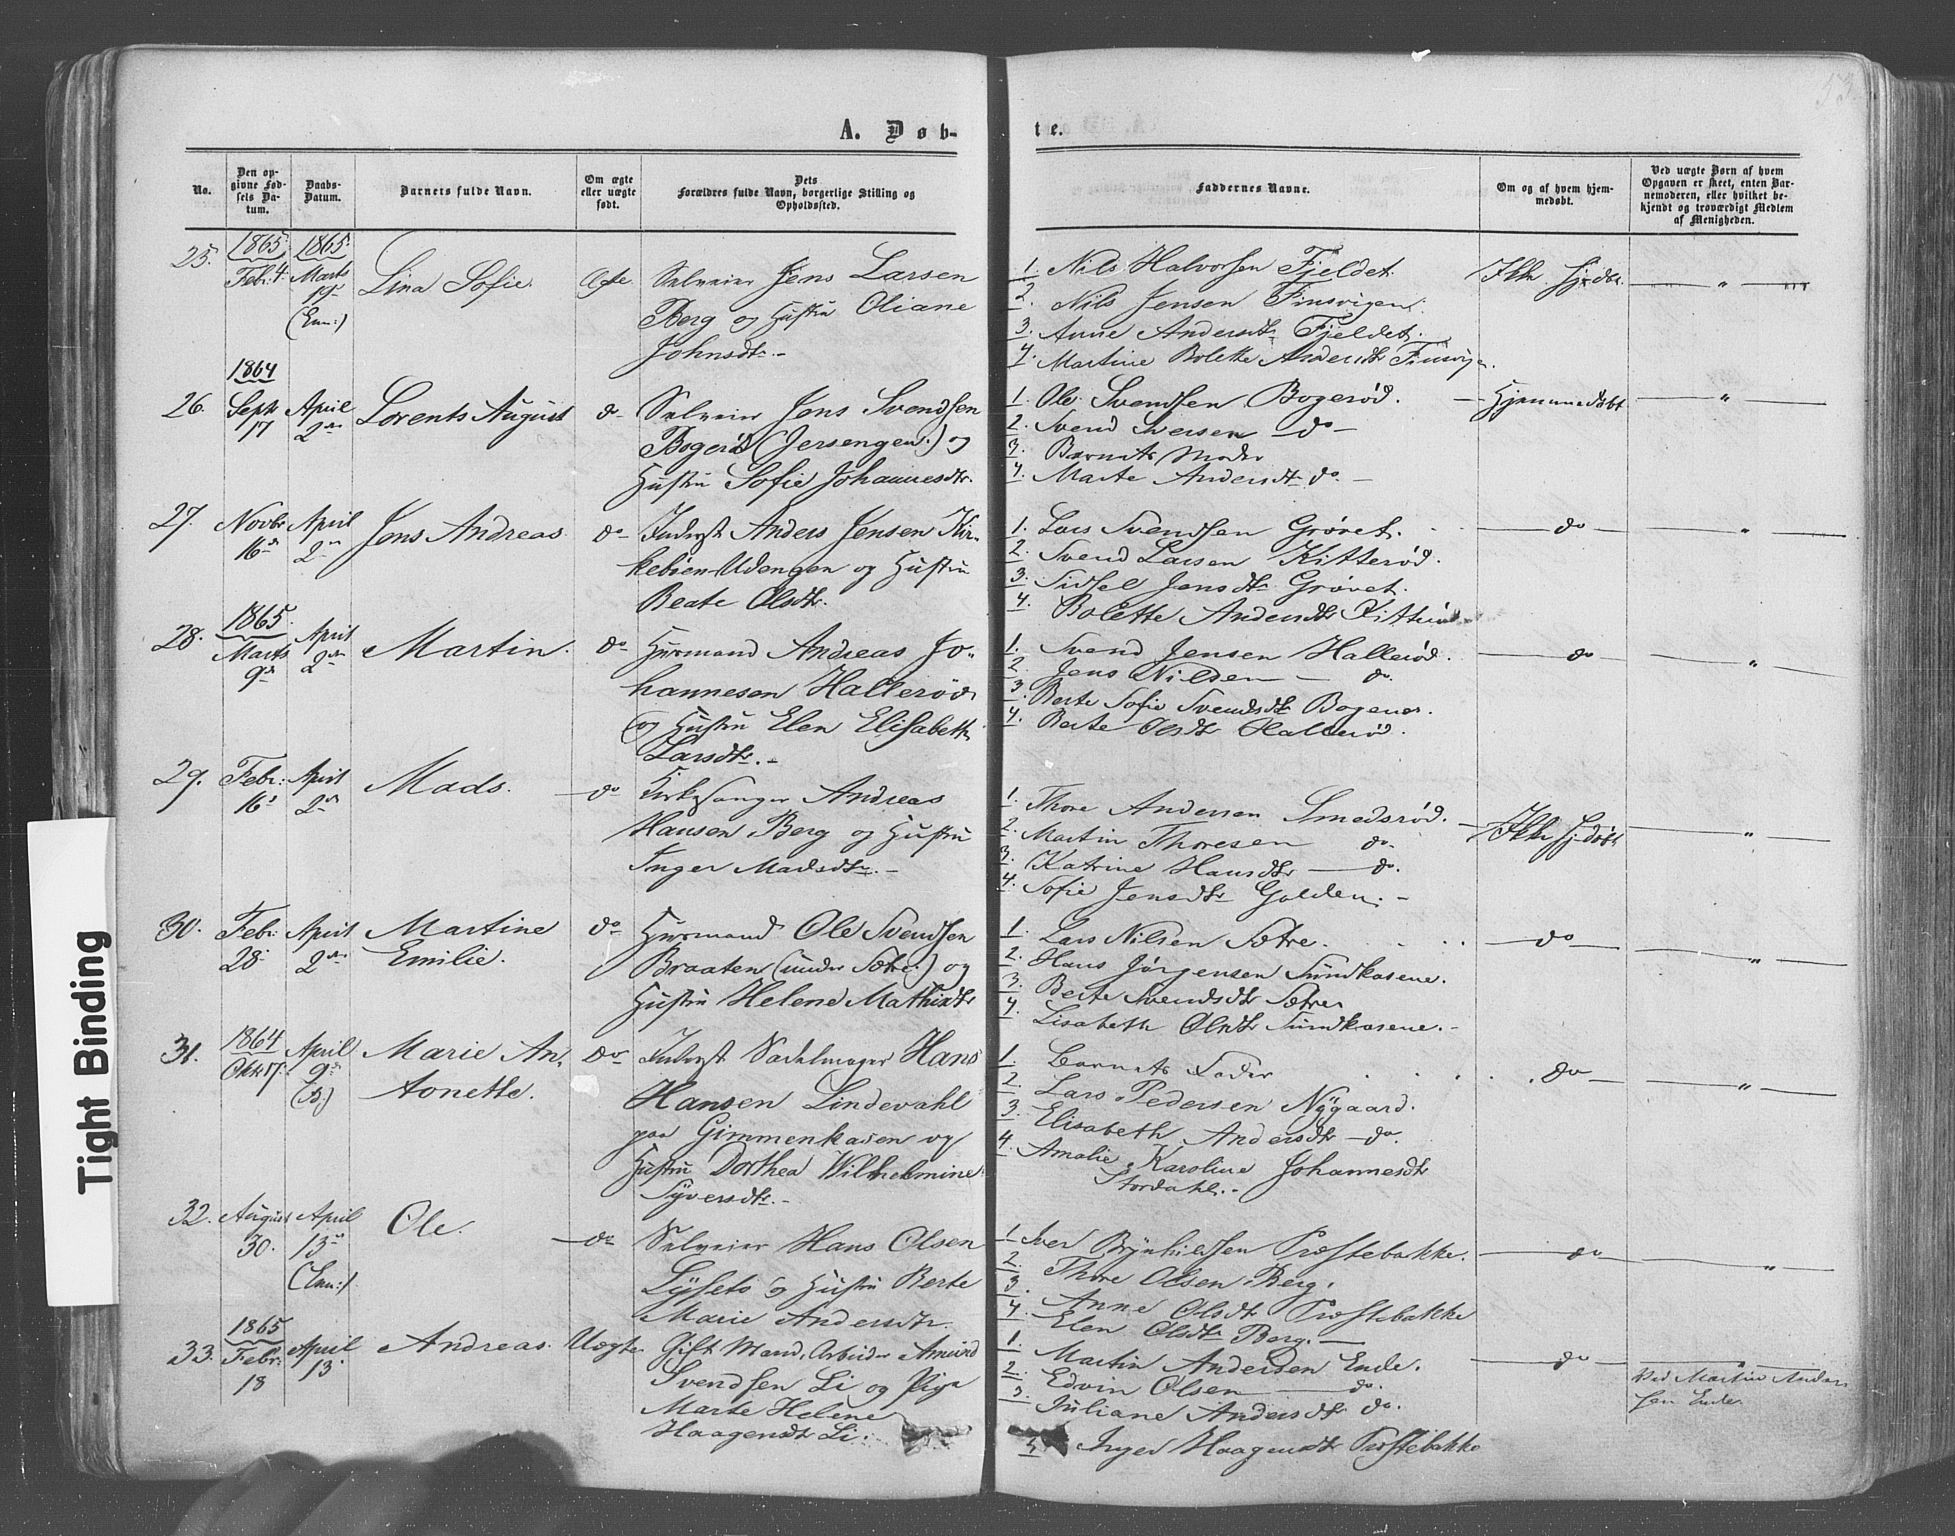 53.
A. Døb-
te.
No.
Den opgivne Fødsels Datum.
Daabs-Datum.
Barnets fulde Navn.
Om ægte eller uægte født.
Dets Forældres fulde Navn, borgerlige Stilling og Opholdssted.
Faddernes Navne.
Om og af hvem hjemmedøbt.
Ved uægte Børn af hvem Opgaven er skeet, enten Barnemoderen, eller hvilket bekjendt og troværdigt Medlem af Menigheden.
25. 1865 Febr: 4. 1865 Marts 19de (Enn:) Lina Sofie. Ægte. Selveier Jens Larsen
Berg og Hustru Oliane
Johnsdtr.-
1. Nils Halvorsen Fjeldet. Ikke Hjdbt. "
2. Nils Jensen Finsvigen.
3. Anne Andersdtr Fjeldet.
4. Martine Bolette Andersdtr
26. 1864 Septr 17 April 2den Lorents August do Selveier Jens Svendsen
Bogerød (Jersengen.) og
Hustru Sofie Johannesdtr.
1. Ole Svendsen Bogerød. Hjemmedøbt "
2. Svend Iversen do
3. Barnets Moder
4. Marte Andersdtr do.
27. Novbr 16de April 2den Jens Andreas. do Inderst Anders Jensen Kir-
kebøen-Udengen og Hustru
Beate Olsdtr.
1. Lars Svendsen Grøvet. do "
2. Svend Larsen Kitterød.
3. Sidsel Jensdtr Grøvet.
4. Bolette Andersdtr Kitterød
28. 1865 Marts 9de April 2den Martin. do Husmand Andreas Jo-
hannesen Hallerød
og Hustru Elen Elisabeth
Larsdtr.-
1. Svend Jensen Hallerød. do "
2. Jens Nilsen do.
3. Berte Sofie Svendsdtr
4. Berte Olsdtr Hallerød.
29. Febr: 16de April 2den Mads. do Kirkesanger Andreas
Hansen Berg og Hustru
Inger Madsdtr.-
1. Thore Andersen Smedsrød. Ikke Hjdøbt "
2. Martin Thoresen do.
3. Katrine Hansdtr do.
4. Sofie Jensdtr Golden.-
30. Febr: 28. April 2den Martine
Emilie. do Husmand Ole Svendsen
Braaten (under Sætre.) og
Hustru Helene Mathisdtr
1. Lars Nilsen Sætre. do "
2. Hans Jørgensen Sundkasene.
3. Berte Svendsdtr Sætre
4. Lisabeth Olsdtr Sundkasene.-
31. 1864 Oktr 17. April 9de Marie An-
tonette. do Inderst Sadelmager Hans
Hansen Lindevahl
paa Gimmenkasen og
Hustru Dorthea Wilhelmine
Syversdtr.-
1. Barnets Fader do "
2. Lars Pedersen Nygaard.
3. Elisabeth Andersdtr do.
4. Amalie Karoline Johannesdtr
Stordahl.-
32. August 30. April 13de (Enn:) Ole. do Selveier Hans Olsen
Lysets og Hustru Berte
Marie Andersdtr.
1. Iver Brynhildsen Præstebakke. do "
2. Thore Olsen Berg.
3. Anne Olsdtr Præstebakke
4. Elen Olsdtr Berg.
33. 1865 Febr: 18 April 13. Andreas. Uægte. Gift Mand, Arbeider Amund
Svendsen Li og Pige
Marte Helene
Haagensdtr Li.
1. Martin Andersen Ende. do Ved Martin Ander-
sen Ende.
2. Edvin Olsen do.
3. Juliane Andersdtr do.
4. Inger Haagensdtr Præstebakke
Tight Binding